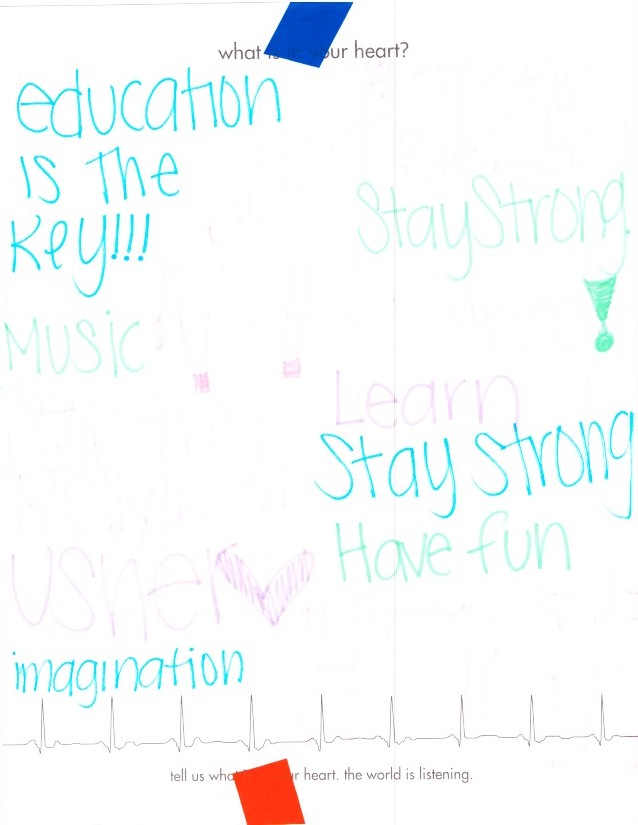 what is in your heart?
education
Is The
Key!!!
Stay Strong
!
Music
Learn
Stay Strong
Have fun
Usher
imagination
tell us what your heart. the world is listening.